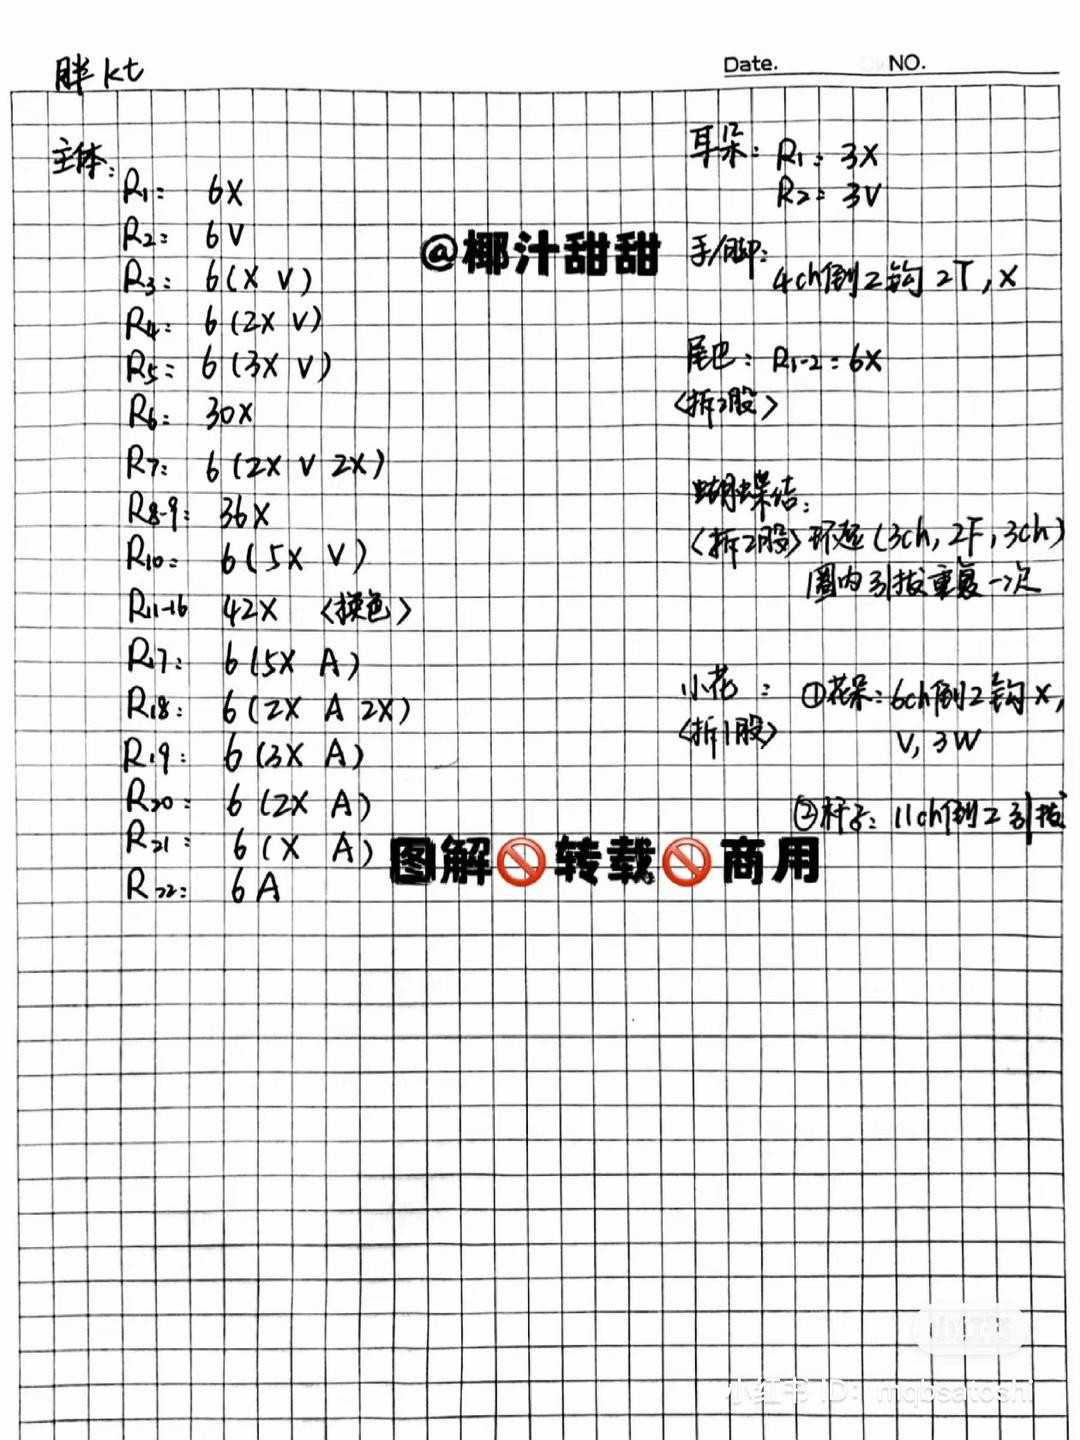 胖kt
Date. NO.
主体:
R1: 6X
R2: 6V
R3: 6(X V)
R4: 6(2X V)
R5: 6(3X V)
R6: 30X
R7: 6(2X V 2X)
R8-9: 36X
R10: 6(5X V)
R11-16 42X <换色>
R17: 6(5X A)
R18: 6(2X A 2X)
R19: 6(3X A)
R20: 6(2X A)
R21: 6(X A)
R22: 6A
耳朵: R1: 3X
R2: 3V
手/脚:
4ch倒2钩2T,X
尾巴: R1-2:6X
<拆2股>
蝴蝶结:
<拆2股>环起(3ch,2F,3ch)
圈内引拔重复一次
小花: ①花朵:6ch倒2钩X,
<拆1股> V,3W
②杆子:11ch倒2引拔
@椰汁甜甜
图解🚫转载🚫商用
小红书
小红书 ID: mqbsatoshi